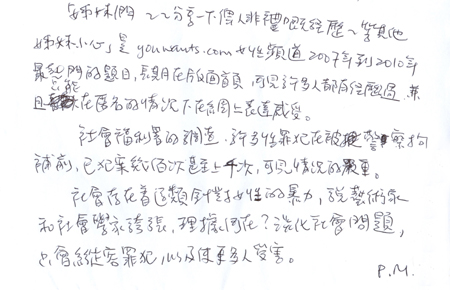 姊妹們～～分享一下俾人非禮嘅經歷～等其他
姊妹小心」是youwants.com女性頻道2007年到2010年
最熱門的題目,長期在版面首頁,可見許多人都有經歷過,兼
且只能在匿名的情況下在網上表達感受。
社會福利署的調查,許多性罪犯在被警察拘
捕前,已犯案幾百次甚至上千次,可見情況的嚴重。
社會存在着這類針對女性的暴力,說藝術家
和社會學家誇張,理據何在?淡化社會問題,
只會縱容罪犯,以及使更多人受害。
P.M.